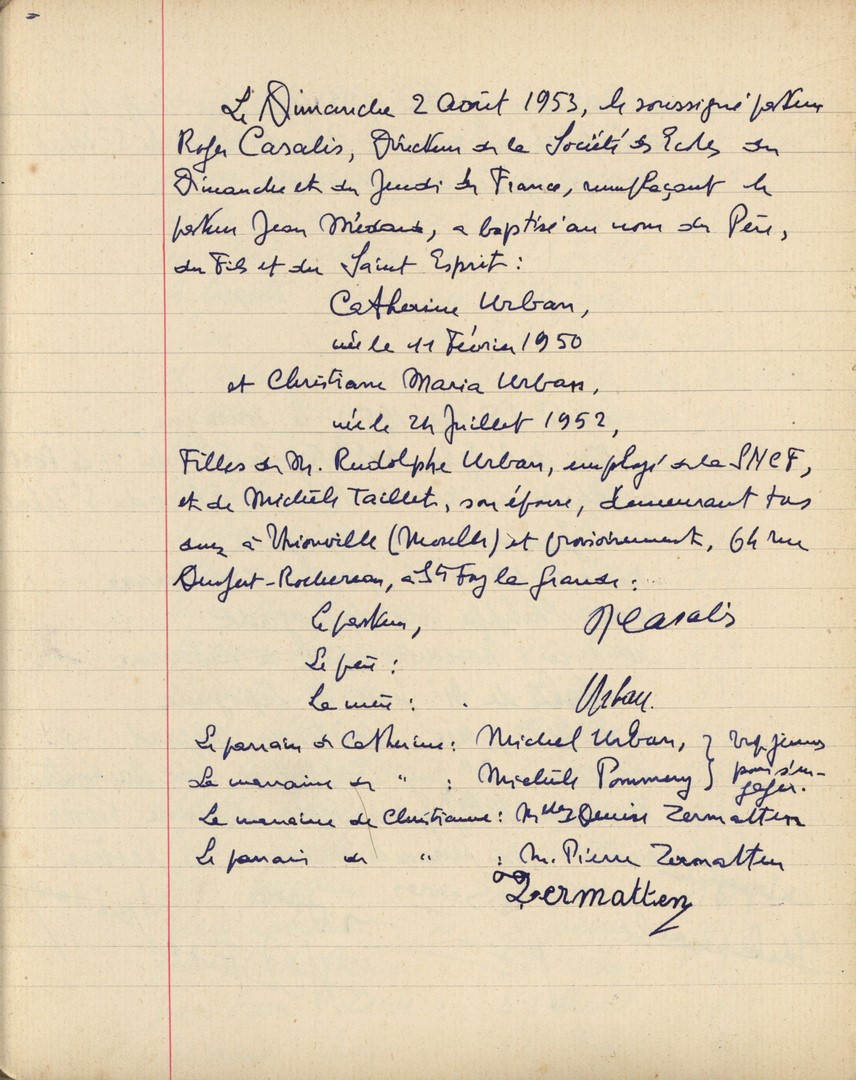 Le Dimanche 2 Août 1953, le soussigné pasteur
Roger Casalis, Directeur de la Société des Ecoles du
Dimanche et du Jeudi de France, remplaçant le
pasteur Jean Médard, a baptisé au nom du Père,
du Fils et du Saint Esprit :
Catherine Urban,
née le 11 Février 1950
et Christiane Maria Urban,
née le 24 Juillet 1952,
Filles de M. Rudolphe Urban, employé de la SNCF,
et de Michèle Taillet, son épouse, demeurant tous
deux à Thionville (Moselle) et provisoirement, 64 rue
Denfert-Rochereau, à Ste Foy la Grande :
Le pasteur, R Casalis
Le père :
La mère : Urban.
Le parrain de Catherine : Michel Urban, } trop jeunes
La marraine de " : Michèle Pommery } pour s'en-
gager.
La marraine de Christianne : Denise Zermatten
Le parrain de " : M. Pierre Zermatten
Zermatten